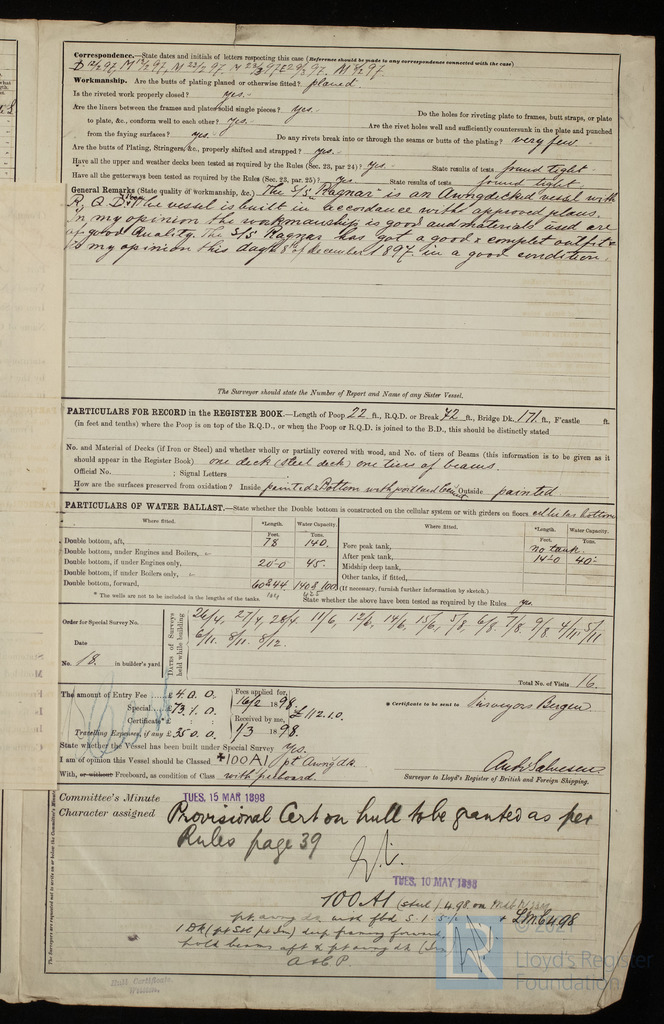 Correspondence.—State dates and initials of letters respecting this case (Reference should be made to any correspondence connected with the case)
Workmanship. Are the butts of plating planed or otherwise fitted? planed.
Is the riveted work properly closed? yes.
Are the liners between the frames and plates solid single pieces? yes. Do the holes for riveting plate to frames, butt straps, or plate
to plate, &c., conform well to each other? yes. Are the rivet holes well and sufficiently countersunk in the plate and punched
from the faying surfaces? yes. Do any rivets break into or through the seams or butts of the plating? very few
Are the butts of Plating, Stringers, &c., properly shifted and strapped? yes.
Have all the upper and weather decks been tested as required by the Rules (Sec. 23, par 24)? yes State results of tests found tight
Have all the gutterways been tested as required by the Rules (Sec. 23, par. 25)? yes State results of tests found tight
General Remarks (State quality of workmanship, &c.) The S/S "Ragnar" is an Awngdecked vessel with
R. Q. D. The vessel is built in accordance with approved plans.
In my opinion the workmanship is good and materials used are
of good quality. The S/S Ragnar has got a good & complet outfit &
is my opinion this day 8th of december 1897. in a good condition.
The Surveyor should state the Number of Report and Name of any Sister Vessel.
PARTICULARS FOR RECORD in the REGISTER BOOK.—Length of Poop 22 ft., R.Q.D. or Break 72 ft., Bridge Dk. 171 ft., F'castle ft.
(in feet and tenths) where the Poop is on top of the R.Q.D., or when the Poop or R.Q.D. is joined to the B.D., this should be distinctly stated
No. and Material of Decks (if Iron or Steel) and whether wholly or partially covered with wood, and No. of tiers of Beams (this information is to be given as it
should appear in the Register Book) one deck (steel deck) one tiers of beams.
Official No. ; Signal Letters
How are the surfaces preserved from oxidation? Inside painted & Bottom with portland cement Outside painted
PARTICULARS OF WATER BALLAST.—State whether the Double bottom is constructed on the cellular system or with girders on floors cellular bottom
Where fitted. *Length. Water Capacity. Where fitted. *Length. Water Capacity.
Feet. Tons. Feet. Tons.
Double bottom, aft, 78 140. Fore peak tank, no tank.
Double bottom, under Engines and Boilers, After peak tank, 14-0 40-
Double bottom, if under Engines only, 20-0 45. Midship deep tank,
Double bottom, if under Boilers only, Other tanks, if fitted,
Double bottom, forward, 60 & 44 140 & 100 (If necessary, furnish further information by sketch.)
* The wells are not to be included in the lengths of the tanks. 425 State whether the above have been tested as required by the Rules yes.
Order for Special Survey No.
Date
No. 18. in builder's yard.
DATES of Surveys held while building
26/4, 27/4, 28/4. 11/6, 12/6, 14/6, 15/6, 5/8, 6/8, 7/8, 9/8, 4/11, 5/11
6/11. 8/11. 8/12.
Total No. of Visits 16.
The amount of Entry Fee £ 4. 0. 0. Fees applied for,
Special £ 73. 1. 0 16/2 1898.
Certificate* £ : : Received by me, £112.1.0.
Travelling Expenses, if any £ 35. 0. 0 1/3 1898.
* Certificate to be sent to Surveyors Bergen
State whether the Vessel has been built under Special Survey yes.
I am of opinion this Vessel should be Classed +100 A1 pt Awng dk
With, or without Freeboard, as condition of Class with freeboard.
Surveyor to Lloyd's Register of British and Foreign Shipping.
Committee's Minute TUES. 15 MAR 1898
Character assigned Provisional Cert on hull to be granted as per
Rules page 39
TUES. 10 MAY 1898
100 A1 (steel) 4.98 on
pt. awng dk with fbd + LMC 4.98
1 Dk (pt Stl pt Irn) deep framing forward
hold beams aft & pt awng dk (Irn)
A & C.P.
The Surveyors are requested not to write on or below the Committee's Minute.
Hull Certificate
Written.
© 2021
LR
Lloyd's Register
Foundation